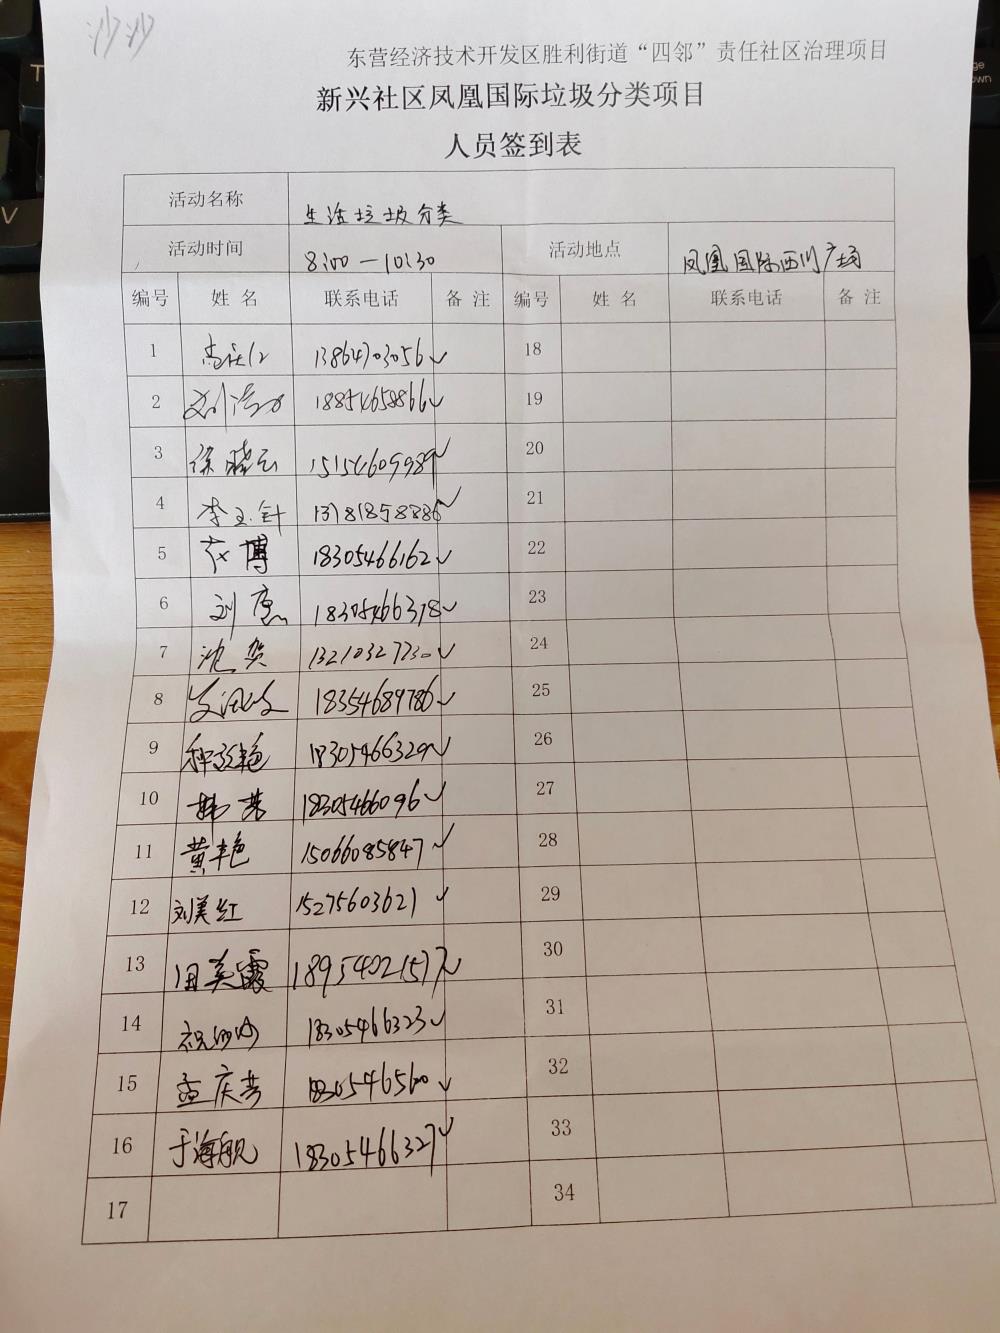 沙沙
东营经济技术开发区胜利街道“四邻”责任社区治理项目
新兴社区凤凰国际垃圾分类项目
人员签到表
活动名称 生活垃圾分类
活动时间 8:00—10:30 活动地点 凤凰国际西川广场
编号 姓名 联系电话 备注 编号 姓名 联系电话 备注
1 13864703056 ✓ 18
2 18854658866 ✓ 19
3 徐晓云 15154609989 ✓ 20
4 李玉针 ✓ 21
5 博 18305466162 ✓ 22
6 刘惠 18305466378 ✓ 23
7 沈贺 13210327730 ✓ 24
8 18354689786 ✓ 25
9 艳 18305466329 ✓ 26
10 韩 18305466096 ✓ 27
11 黄艳 15066085847 ✓ 28
12 刘美红 15275603621 ✓ 29
13 田美霞 18954021577 ✓ 30
14 祝 18305466323 ✓ 31
15 孟庆芳 ✓ 32
16 于海舰 18305466327 ✓ 33
17 34